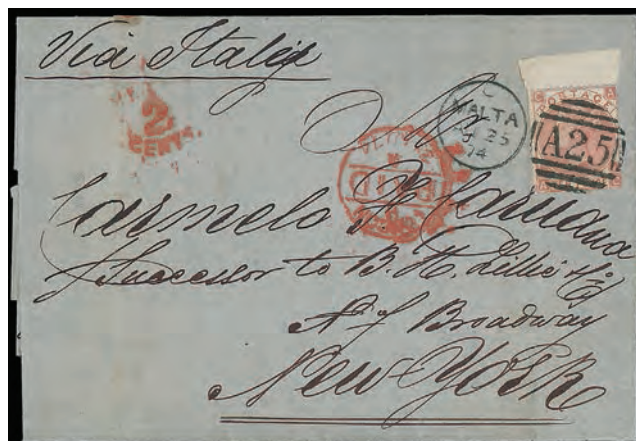 Via Italy
2
CENTS
C
MALTA
25
74
POSTAGE
A25
Carmelo F. Caruana
Successor to B. H. Lillie
N. 7 Broadway
New-York